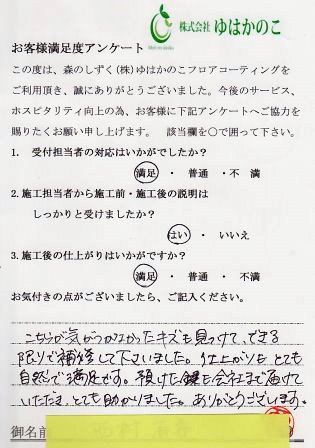 株式会社 ゆはかのこ
お客様満足度アンケート
この度は、森のしずく(株)ゆはかのこフロアコーティングを
ご利用頂き、誠にありがとうございました。今後のサービス、
ホスピタリティ向上の為、お客様に下記アンケートへご協力を
賜りたくお願い申し上げます。 該当欄を○で囲って下さい。
1. 受付担当者の対応はいかがでしたか?
満足 ・ 普通 ・不 満
2.施工担当者から施工前・施工後の説明は
しっかりと受けましたか?
はい ・ いいえ
3.施工後の仕上がりはいかがですか?
満足 ・ 普通 ・ 不満
お気付きの点がございましたら、ご記入ください。
こちらが気がつかなかったキズも見つけて、できる
限りで補修して下さいました。仕上がりも とても
自然で満足です。預けた鍵も会社まで届けて
いただき、とても助かりました。ありがとうございます。
御名前